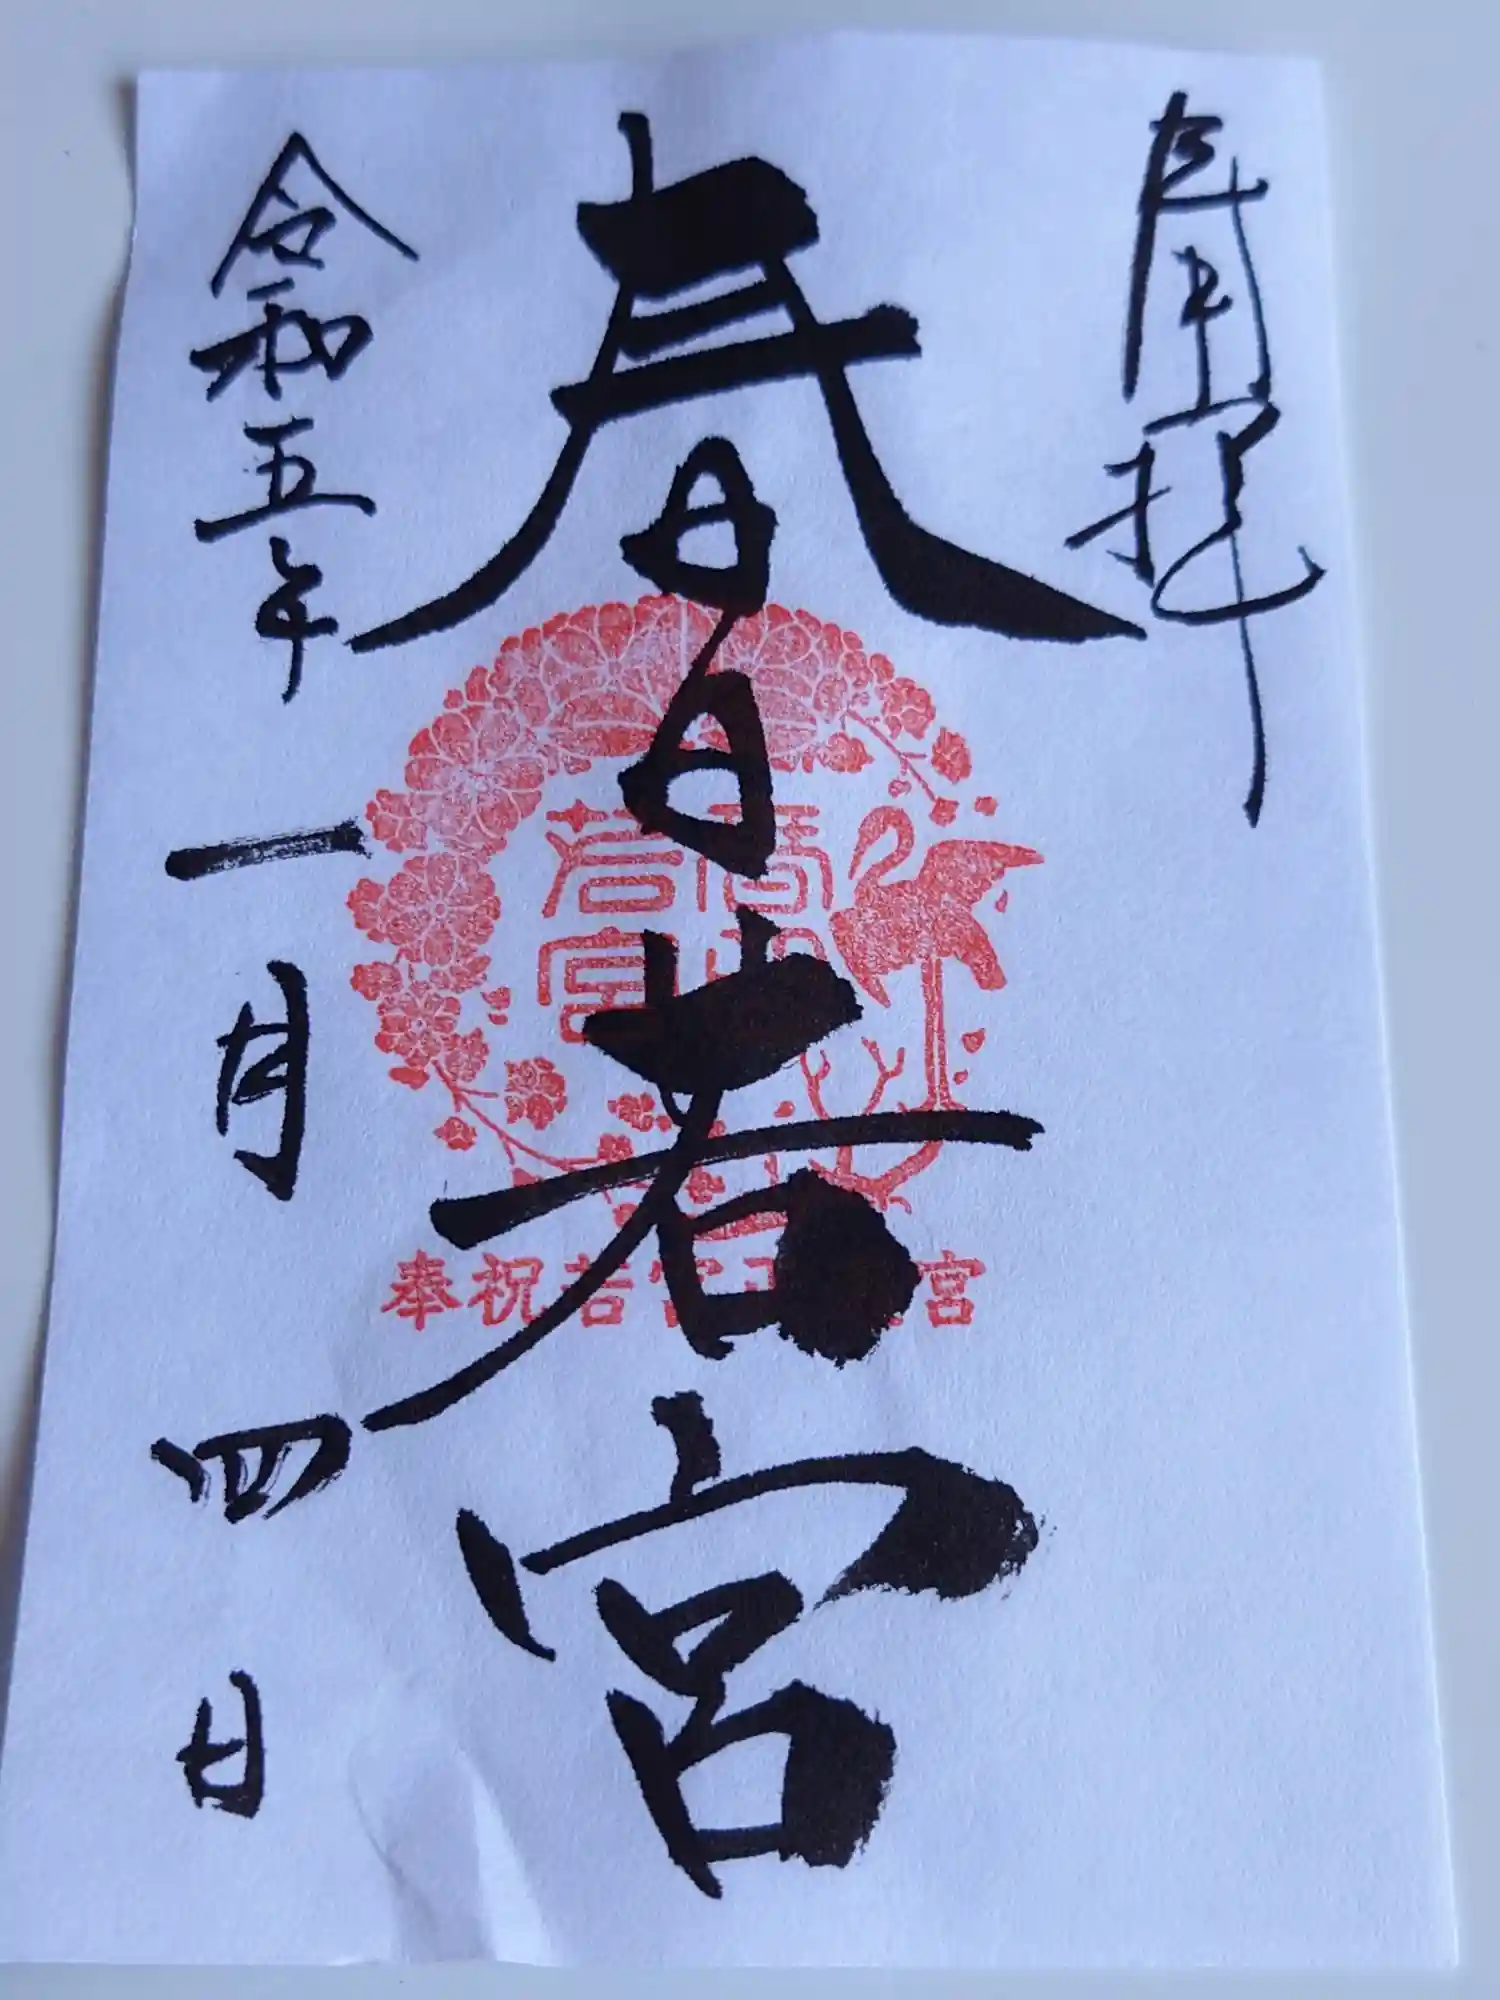 奉拝
春日若宮
春日
若宮
奉祝若宮
宮
令和五年一月四日